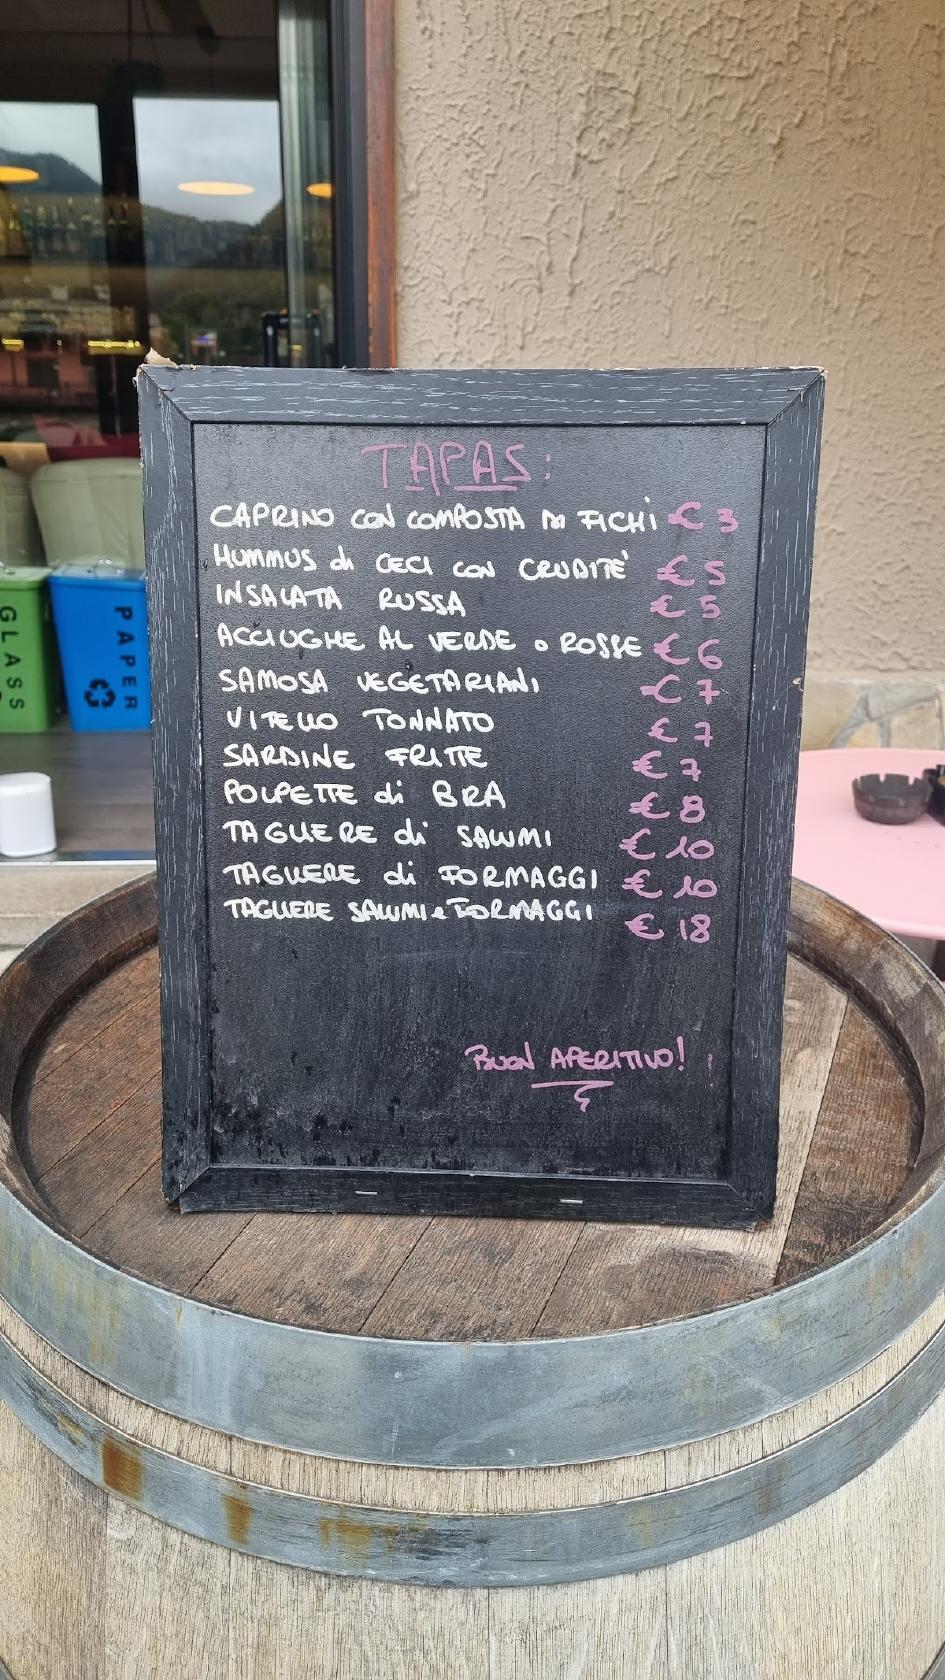 TAPAS:
CAPRINO CON COMPOSTA DI FICHI € 3
HUMMUS di CECI CON CRUDITE' € 5
INSALATA RUSSA € 5
ACCIUGHE AL VERDE o ROSSE € 6
SAMOSA VEGETARIANI € 7
VITELLO TONNATO € 7
SARDINE FRITTE € 7
POLPETTE di BRA € 8
TAGLIERE di SALUMI € 10
TAGLIERE di FORMAGGI € 10
TAGLIERE SALUMI e FORMAGGI € 18
BUON APERITIVO!
GLASS
PAPER